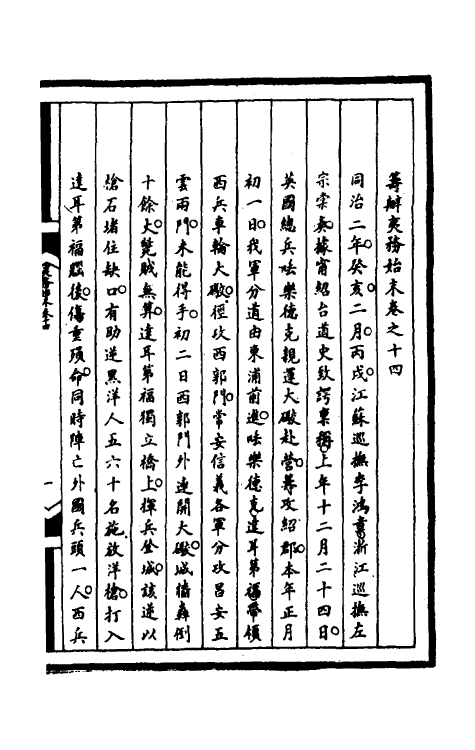 籌辦夷務始末卷之十四
同治二年癸亥二月丙戌江蘇巡撫李鴻章浙江巡撫左
宗棠奏據甯紹台道史致諤稟稱上年十二月二十四日
英國總兵呿樂德克親運大礮赴營籌攻紹郡本年正月
初一日我軍分道由東浦前進呿樂德克達耳第福帶領
西兵車輪大礮徑攻西郭門常安信義各軍分攻昌安五
雲兩門未能得手初二日西郭門外連開大礮城牆轟倒
十餘丈斃賊無算達耳第福獨立橋上揮兵登城該逆以
愴石堵住缺口有助逆黑洋人五六十名施放洋槍打入
達耳第福腦後傷重殞命同時陣亡外國兵頭一人西兵
夷務始末卷十四
一